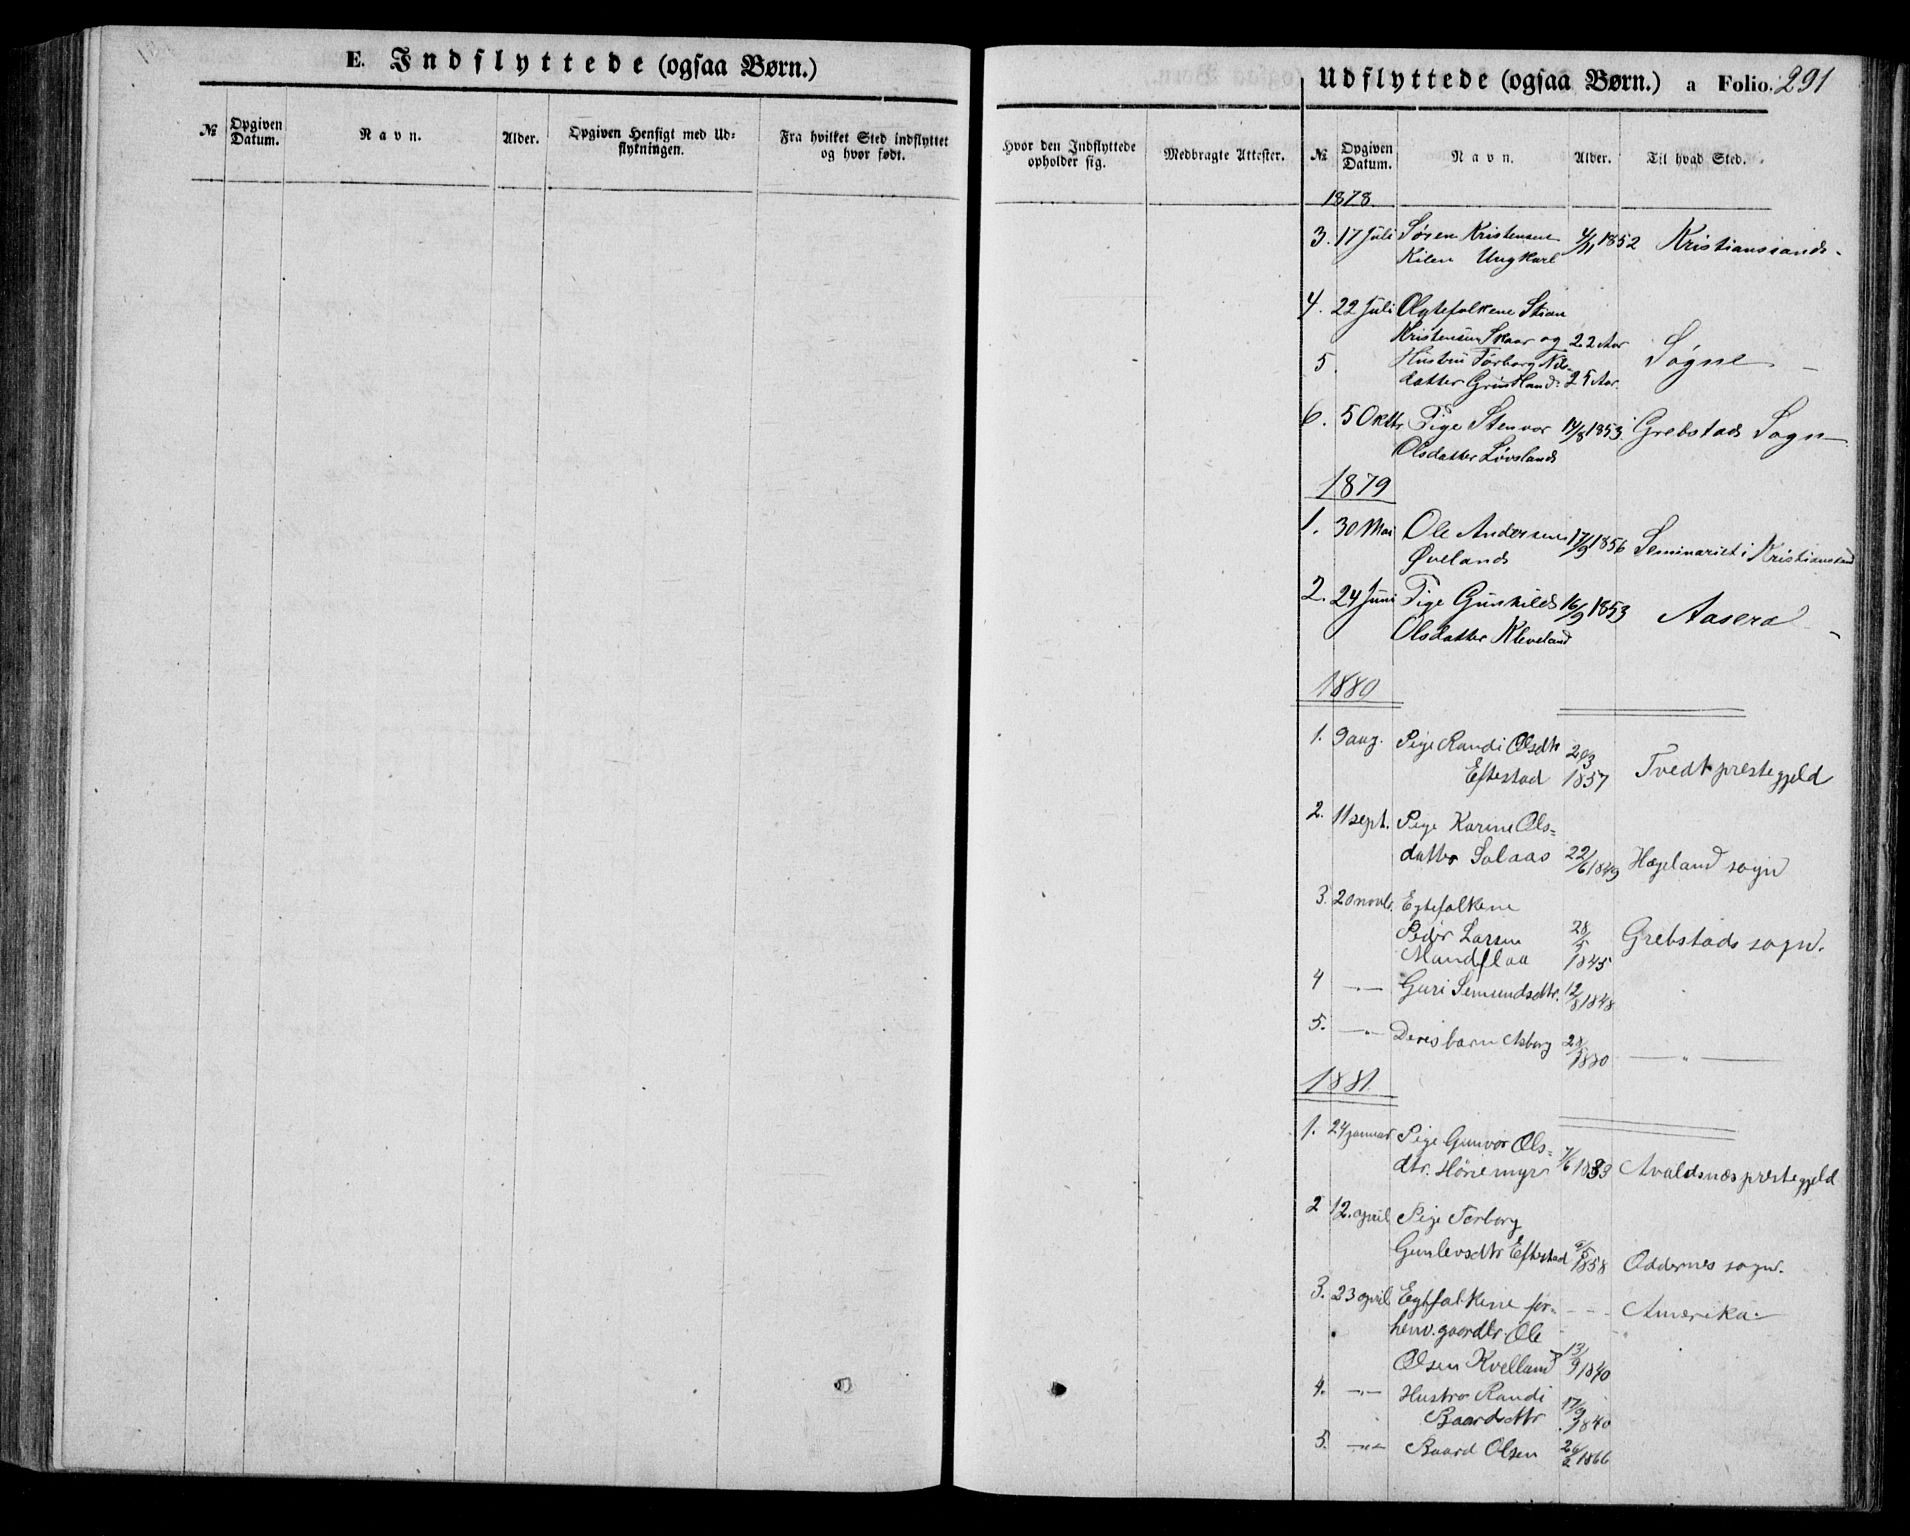 E. Indflyttede (ogsaa Børn.)
№ Opgiven Datum. Navn. Alder. Opgiven Hensigt med Udflytningen. Fra hvilket Sted indflyttet og hvor født.
Hvor den Indflyttede opholder sig. Medbragte Attester.
Udflyttede (ogsaa Børn.) a Folio. 291
№ Opgiven Datum. Navn. Alder. Til hvad Sted.
1878.
3. 17 Juli Søren Kristensen 4/11 1852 Kristianssand.
Kilen Ungkarl
4. 22 Juli Ægtefolkene Stian
Kristensen Skaar og 22 Aar
5. Hustru Torborg Nils Søgne
datter Grindland 25 Aar.
6. 5 Oktbr Pige Stenvor 14/8 1853. Grebstad Sogn
Olsdatter Løvsland
1879
1. 30 Mai Ole Andersen 17/9 1856 Seminariet i Kristianssand
Øveland
2. 24 Juni Pige Gunhild 16/9 1853 Aaseral
Olsdatter Kleveland
1880
1. 9 aug. Pige Randi Olsdtr 20/3
Eftestad 1857 Tvedt prestegjeld
2. 11 sept. Pige Karine Ols=
datter Solaas 22/6 1849 Hægeland sogn
3. 20 novbr. Egtefolkene
Peder Larsen 28/5 Grebstads sogn.
Mandflaa 1845
4 —"— Guri Semundsdtr. 12/8 1848 "
5. —"— Deres barn Asborg 28/ 1880 — " —
1881.
1. 24 januar Pige Gunvor Ols=
dtr. Hönemyr 7/6 1833 Avaldsnæs prestegjeld
2 12. april Pige Torborg
Gunlevsdtr Eftestad 9/5 1858 Oddernes sogn.
3. 23 april Egtefolkene for= - - - Amerika.
henv. gaardbr. Ole
Olsen Kvelland 13/9 1840
4. —"— Hustro Randi 17/9
Baardsdtr 1840
5. —"— Baard Olsen 26/2 1866